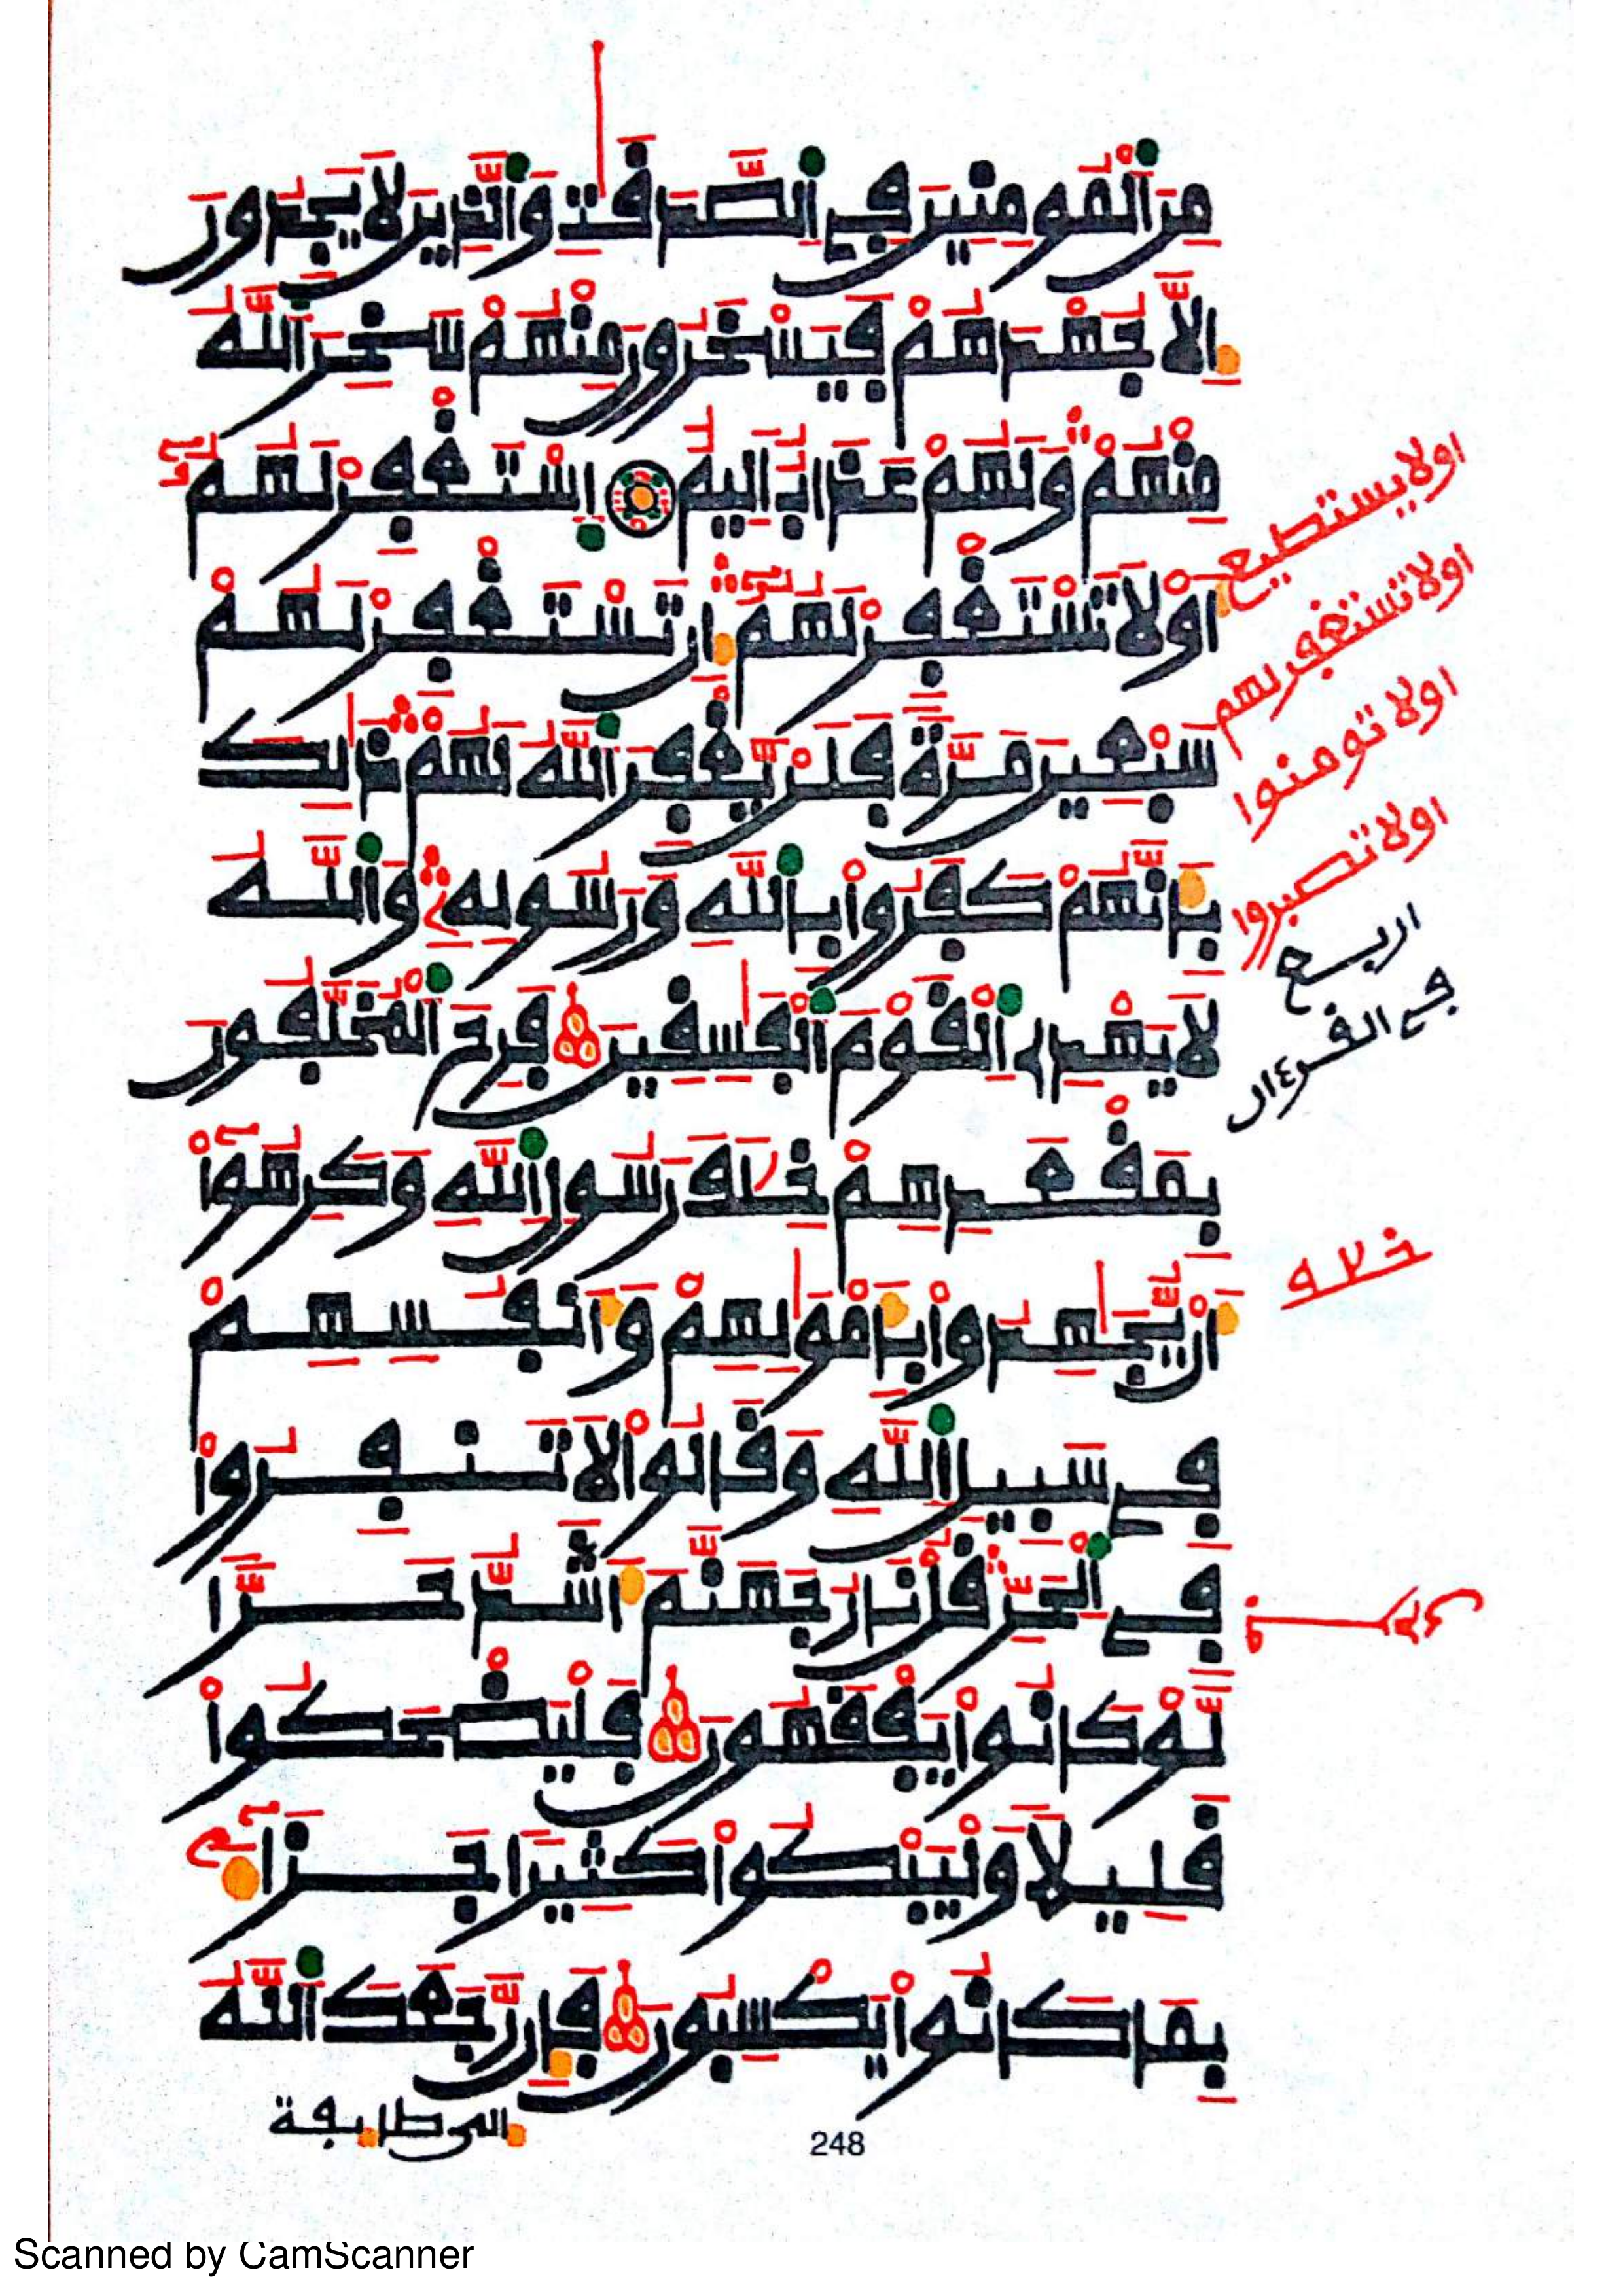 مِنَ ٱلْمُومِنِينَ فِي ٱلصَّدَقَٰتِ وَٱلَّذِينَ لَا يَجِدُونَ
إِلَّا جُهْدَهُمْ فَيَسْخَرُونَ مِنْهُمْ سَخِرَ ٱللَّهُ
مِنْهُمْ وَلَهُمْ عَذَابٌ اَلِيمٌ ٱسْتَغْفِرْ لَهُمُۥٓ
أَوْ لَا تَسْتَغْفِرْ لَهُمُۥٓ إِن تَسْتَغْفِرْ لَهُمْ
سَبْعِينَ مَرَّةً فَلَنْ يَّغْفِرَ ٱللَّهُ لَهُمْ ذَٰلِكَ
بِأَنَّهُمْ كَفَرُوا۟ بِٱللَّهِ وَرَسُولِهِۦ وَٱللَّهُ
لَا يَهْدِے ٱلْقَوْمَ ٱلْفَٰسِقِينَ فَرِحَ ٱلْمُخَلَّفُونَ
بِمَقْعَدِهِمْ خِلَٰفَ رَسُولِ ٱللَّهِ وَكَرِهُوٓا۟
أَنْ يُّجَٰهِدُوا۟ بِأَمْوَٰلِهِمْ وَأَنفُسِهِمْ
فِي سَبِيلِ ٱللَّهِ وَقَالُوا۟ لَا تَنفِرُوا۟
فِي ٱلْحَرِّ قُلْ نَارُ جَهَنَّمَ أَشَدُّ حَرًّا
لَّوْ كَانُوا۟ يَفْقَهُونَ فَلْيَضْحَكُوا۟
قَلِيلًا وَلْيَبْكُوا۟ كَثِيرًا جَزَآءً
بِمَا كَانُوا۟ يَكْسِبُونَ فَإِن رَّجَعَكَ ٱللَّهُ
إلى طايفة
اولا يستطيع
اولا تستغفر لهم
اولا تومنوا
اولا تصبروا
اربع
في القرءان
خلاف
248
Scanned by CamScanner